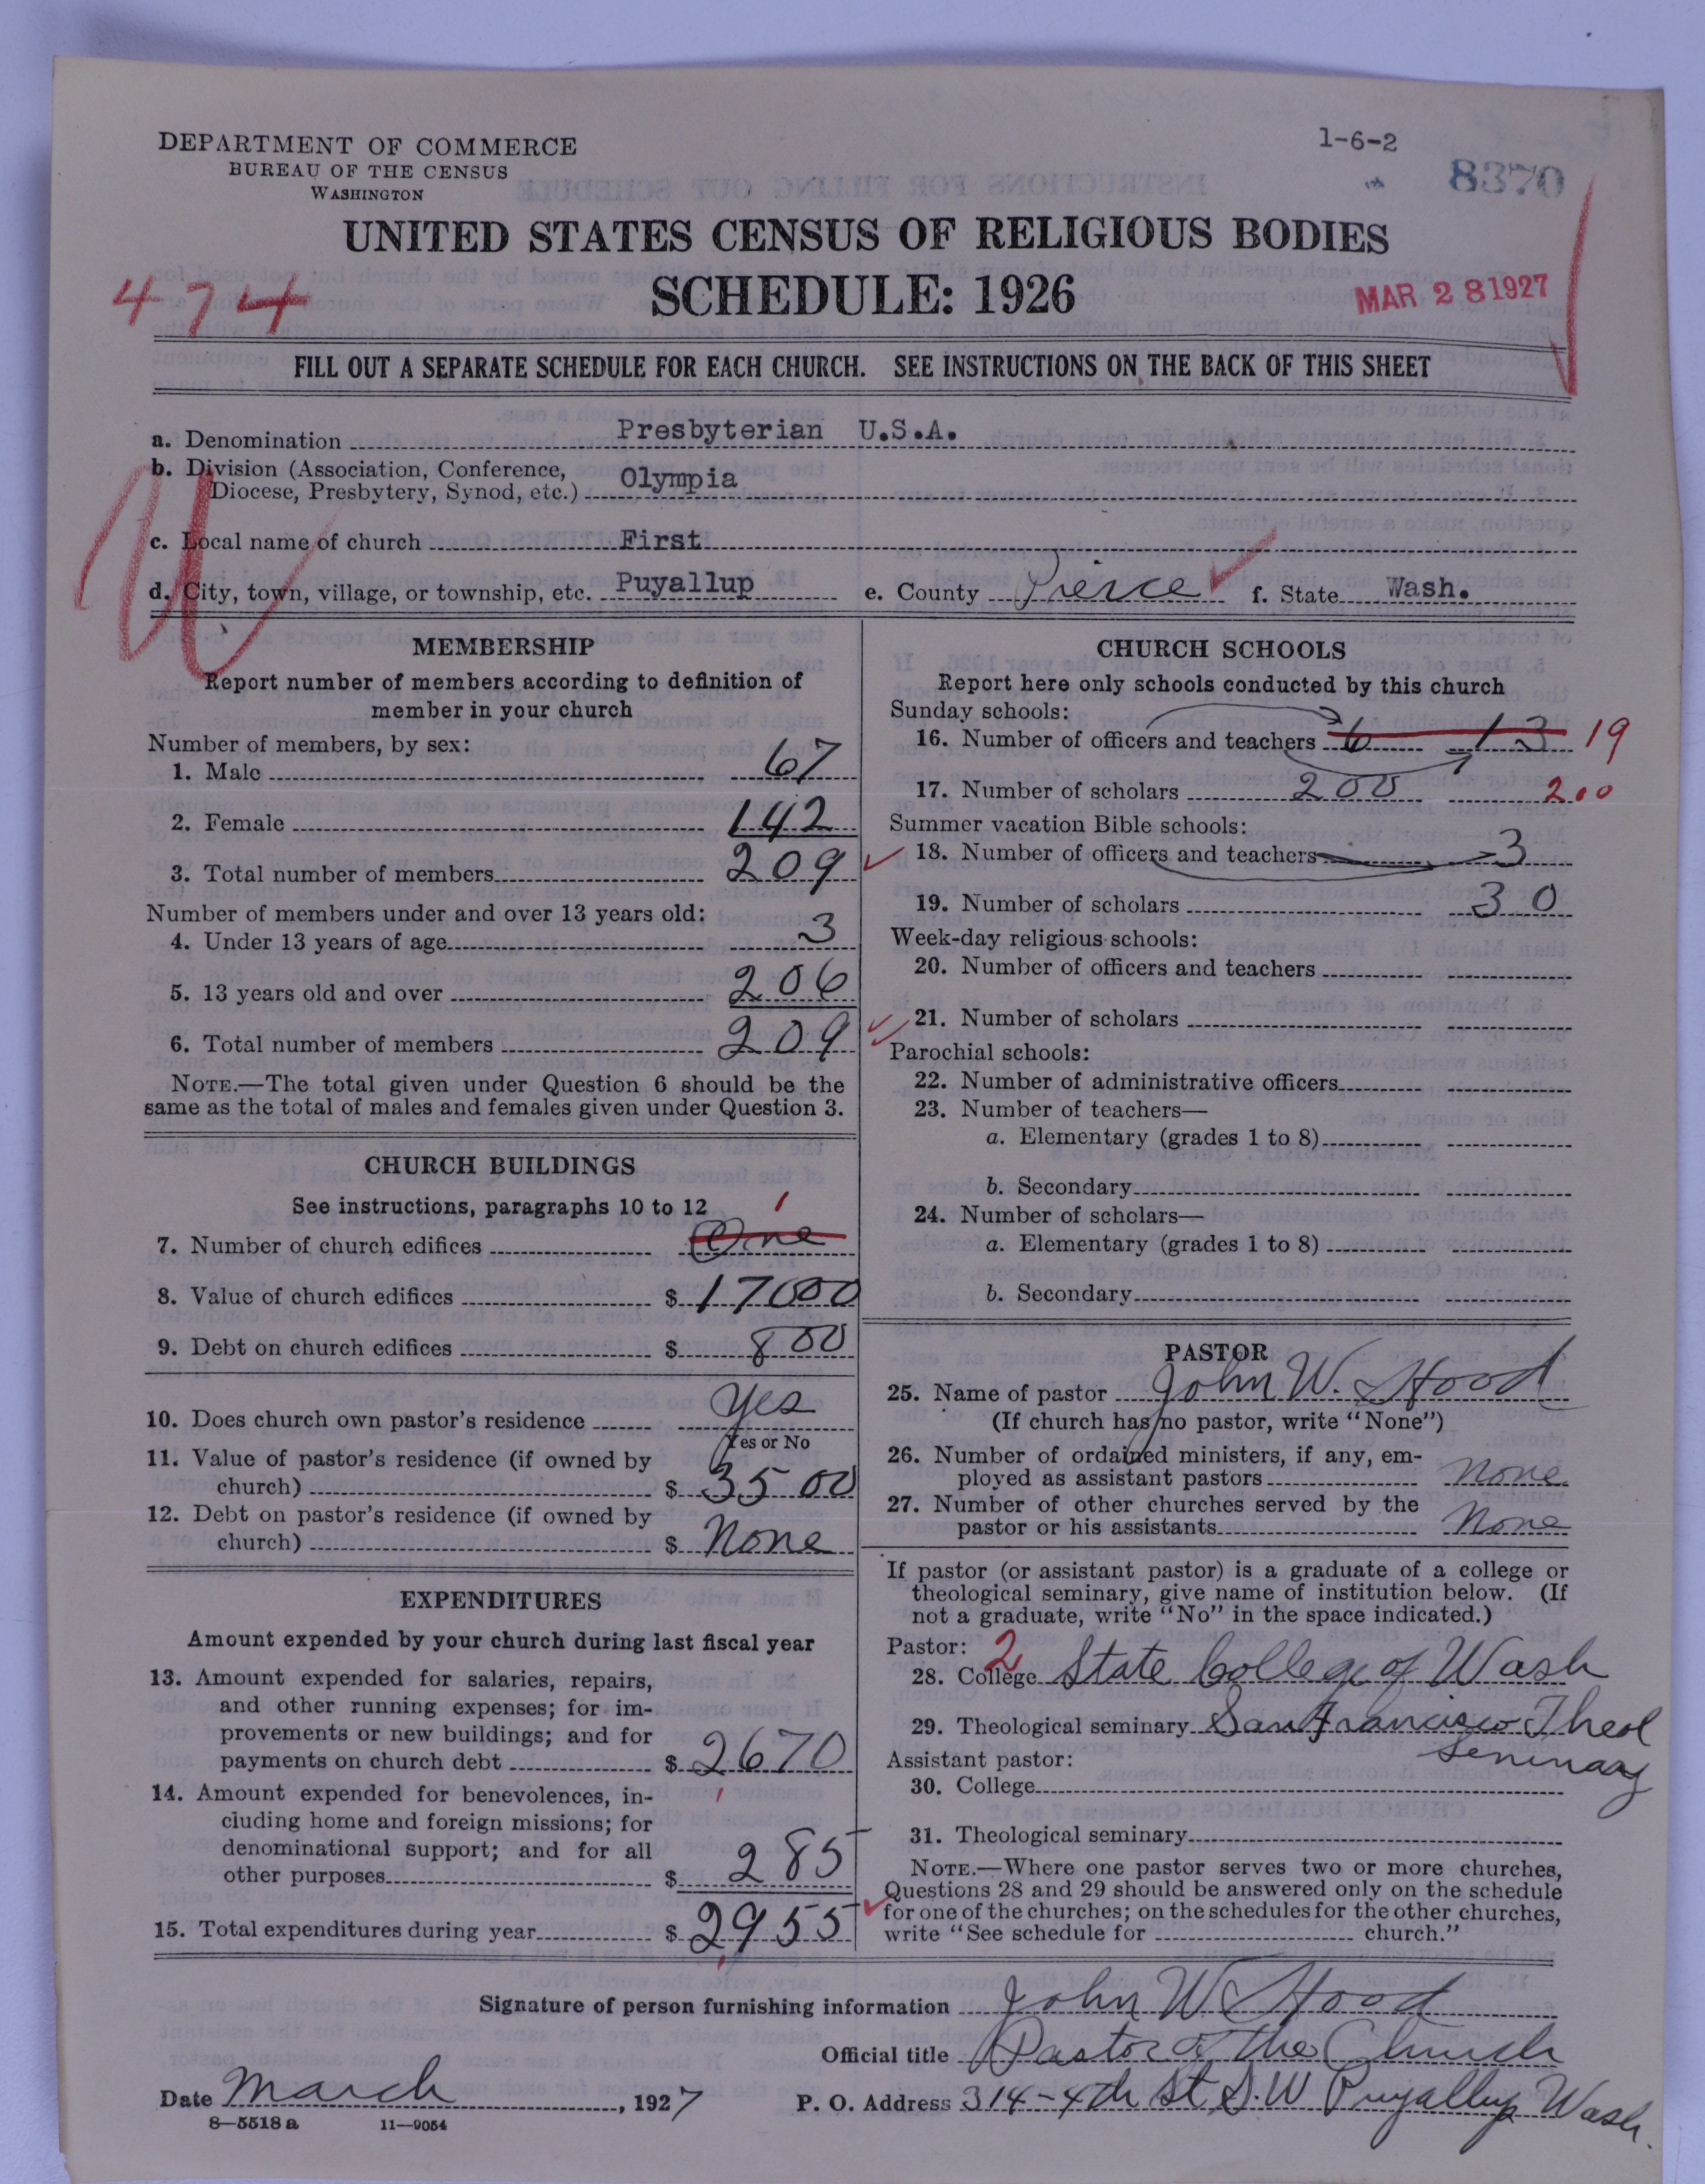 DEPARTMENT OF COMMERCE
BUREAU OF THE CENSUS
WASHINGTON
1-6-2
8370
UNITED STATES CENSUS OF RELIGIOUS BODIES
SCHEDULE: 1926
474
MAR 28 1927
FILL OUT A SEPARATE SCHEDULE FOR EACH CHURCH. SEE INSTRUCTIONS ON THE BACK OF THIS SHEET
a. Denomination Presbyterian U.S.A.
b. Division (Association, Conference,
Diocese, Presbytery, Synod, etc.) Olympia
c. Local name of church First
d. City, town, village, or township, etc. Puyallup e. County Pierce f. State Wash.
MEMBERSHIP
Report number of members according to definition of
member in your church
Number of members, by sex:
1. Male 67
2. Female 142
3. Total number of members 209
Number of members under and over 13 years old:
4. Under 13 years of age 3
5. 13 years old and over 206
6. Total number of members 209
NOTE.—The total given under Question 6 should be the
same as the total of males and females given under Question 3.
CHURCH BUILDINGS
See instructions, paragraphs 10 to 12
1
7. Number of church edifices One
8. Value of church edifices $ 17000
9. Debt on church edifices $ 800
10. Does church own pastor's residence Yes
Yes or No
11. Value of pastor's residence (if owned by
church) $ 3500
12. Debt on pastor's residence (if owned by
church) $ None
EXPENDITURES
Amount expended by your church during last fiscal year
13. Amount expended for salaries, repairs,
and other running expenses; for im-
provements or new buildings; and for
payments on church debt $ 2670
14. Amount expended for benevolences, in-
cluding home and foreign missions; for
denominational support; and for all
other purposes $ 285
15. Total expenditures during year $ 2955
CHURCH SCHOOLS
Report here only schools conducted by this church
Sunday schools:
16. Number of officers and teachers 6 13 19
17. Number of scholars 200 200
Summer vacation Bible schools:
18. Number of officers and teachers 3
19. Number of scholars 30
Week-day religious schools:
20. Number of officers and teachers
21. Number of scholars
Parochial schools:
22. Number of administrative officers
23. Number of teachers—
a. Elementary (grades 1 to 8)
b. Secondary
24. Number of scholars—
a. Elementary (grades 1 to 8)
b. Secondary
PASTOR
25. Name of pastor John W. Hood
(If church has no pastor, write "None")
26. Number of ordained ministers, if any, em-
ployed as assistant pastors None
27. Number of other churches served by the
pastor or his assistants None
If pastor (or assistant pastor) is a graduate of a college or
theological seminary, give name of institution below. (If
not a graduate, write "No" in the space indicated.)
Pastor: 2
28. College State College of Wash
29. Theological seminary San Francisco Theol
Seminary
Assistant pastor:
30. College
31. Theological seminary
NOTE.—Where one pastor serves two or more churches,
Questions 28 and 29 should be answered only on the schedule
for one of the churches; on the schedules for the other churches,
write "See schedule for church."
Signature of person furnishing information John W Hood
Official title Pastor of the Church
Date March, 1927 P. O. Address 314-4th St S.W Puyallup Wash.
8—5518 a 11—9054